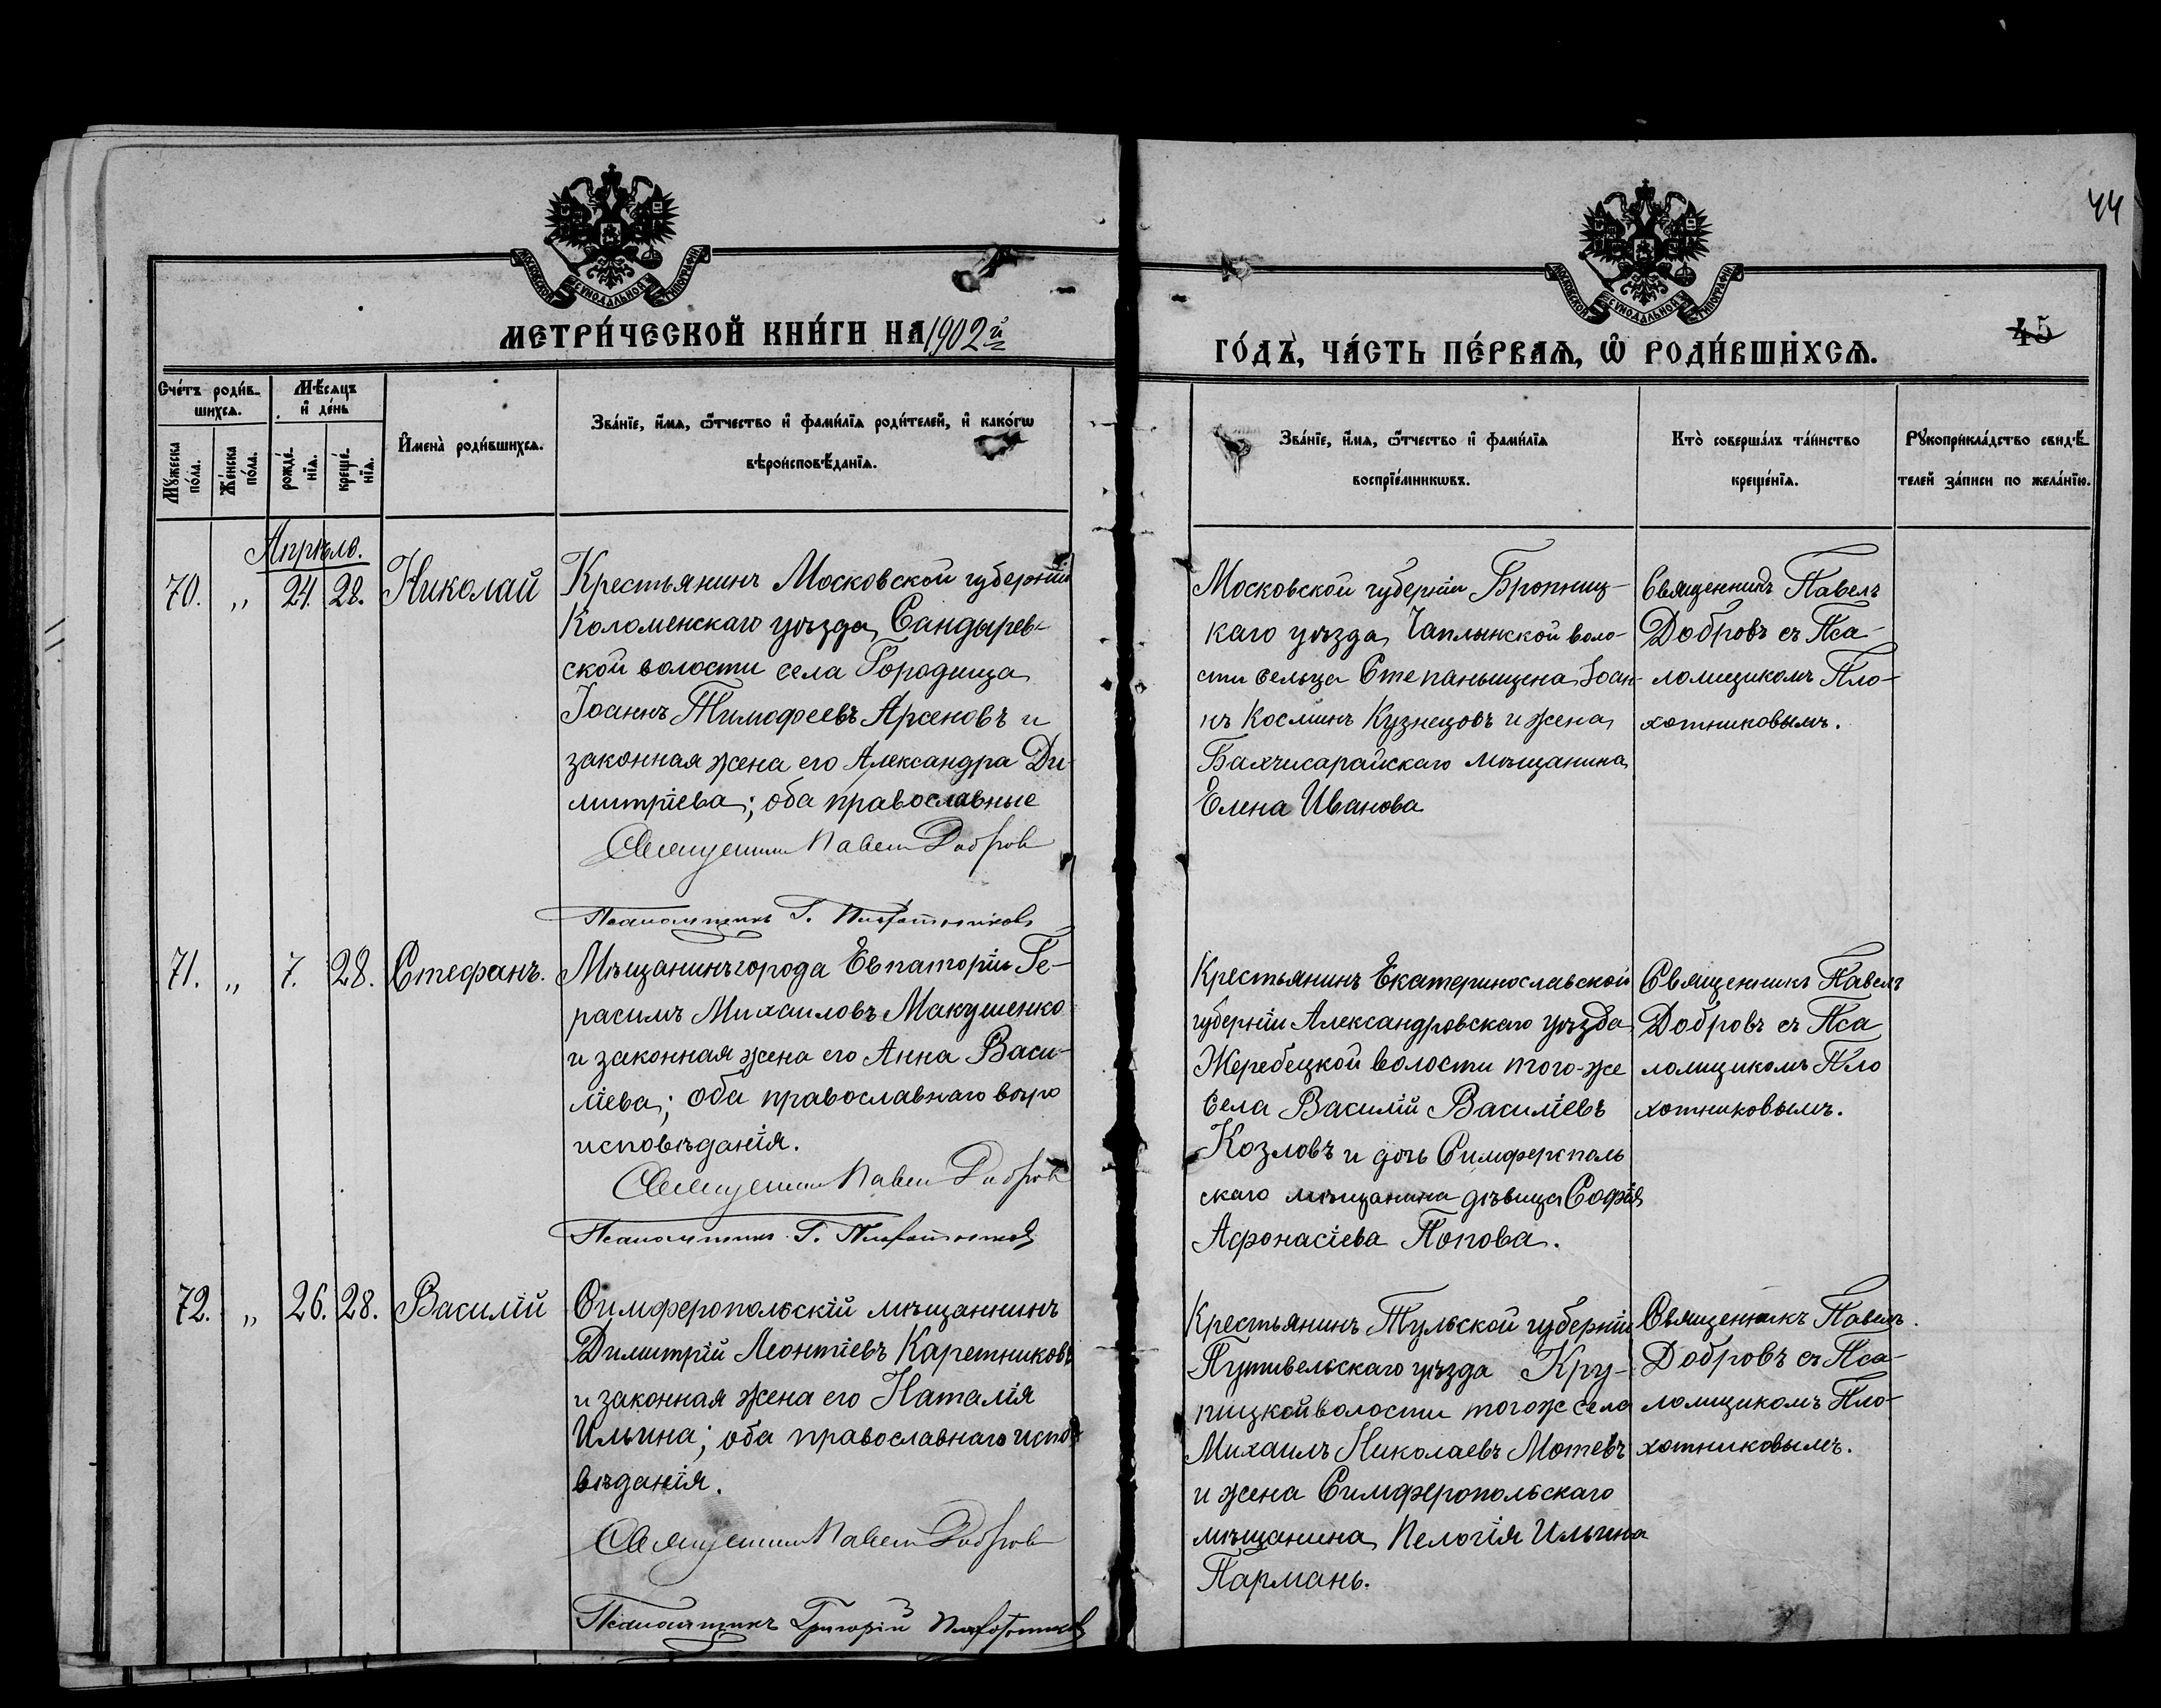 44
МОСКОВСКОЙ СѴНОДАЛЬНОЙ ТИПОГРАФІИ
МОСКОВСКОЙ СѴНОДАЛЬНОЙ ТИПОГРАФІИ
МЕТРИ́ЧЕСКОЙ КНИ́ГИ НА 1902й
ГО́ДЪ, ЧА́СТЬ ПЕ́РВАЯ, Ѡ РОДИ́ВШИХСЯ.
45
Сче́тъ роди́в-
шихся.
Мѣ́сяцъ
и҆ де́нь
Мꙋ́жеска
по́ла.
Же́нска
по́ла.
рожде́-
нїя.
креще́-
нїя.
И҆мена̀ роди́вшихся.
Зва́нїе, и҆́мя, ѻ҆́тчество и҆ фами́лїя роди́телей, и҆ како́гѡ
вѣроисповѣ́данїя.
Зва́нїе, и҆́мя, ѻ҆́тчество и҆ фами́лїя
воспрїе́мникѡвъ.
Кто̀ соверша́лъ та́инство
креще́нїя.
Рꙋкоприкла́дство свидѣ́-
телей за́писи по жела́нїю.
Апрѣля.
70. " 24. 28. Николай
Крестьянинъ Московской губерніи
Коломенскаго уѣзда, Сандырев-
ской волости села Городища
Іоаннъ Тимофеевъ Арсеновъ и
законная жена его Александра Ди-
митріева; оба православные
Священникъ Павелъ Добровъ
Псаломщикъ Г. Плохотниковъ
Московской губерніи Бронниц-
каго уѣзда, Чаплынской воло-
сти сельца Степаньщена Іоан-
нъ Косминъ Кузнецовъ и жена
Бахчисарайскаго мѣщанина
Елена Иванова
Священникъ Павелъ
Добровъ съ Пса-
ломщикомъ Пло-
хотниковымъ.
71. " 7. 28. Стефанъ.
Мѣщанинъ города Евпаторіи Ге-
расимъ Михаиловъ Макушенко
и законная жена его Анна Васи-
ліева; оба православнаго вѣро
исповѣданія.
Священникъ Павелъ Добровъ
Псаломщикъ Г. Плохотниковъ
Крестьянинъ Екатеринославской
губерніи Александровскаго уѣзда
Жеребецкой волости того-же
села Василій Василіевъ
Козловъ и дочь Симферополь
скаго мѣщанина дѣвица Софія
Афонасіева Попова.
Священникъ Павелъ
Добровъ съ Пса
ломщикомъ Пло
хотниковымъ.
72. " 26. 28. Василій
Симферопольскій мѣщаннинъ
Димитрій Леонтіевъ Каретниковъ
и законная жена его Наталія
Ильина; оба православнаго испо-
вѣданія.
Священникъ Павелъ Добровъ
Псаломщикъ Григорій Плохотниковъ
Крестьянинъ Тульской губерніи
Путивельскаго уѣзда Кру-
пицкой волости тогож села
Михаилъ Николаевъ Мотевъ
и жена Симферопольскаго
мѣщанина Пелогія Ильина
Пармань.
Священникъ Павелъ.
Добровъ съ Пса-
ломщикомъ Пло-
хотниковымъ.